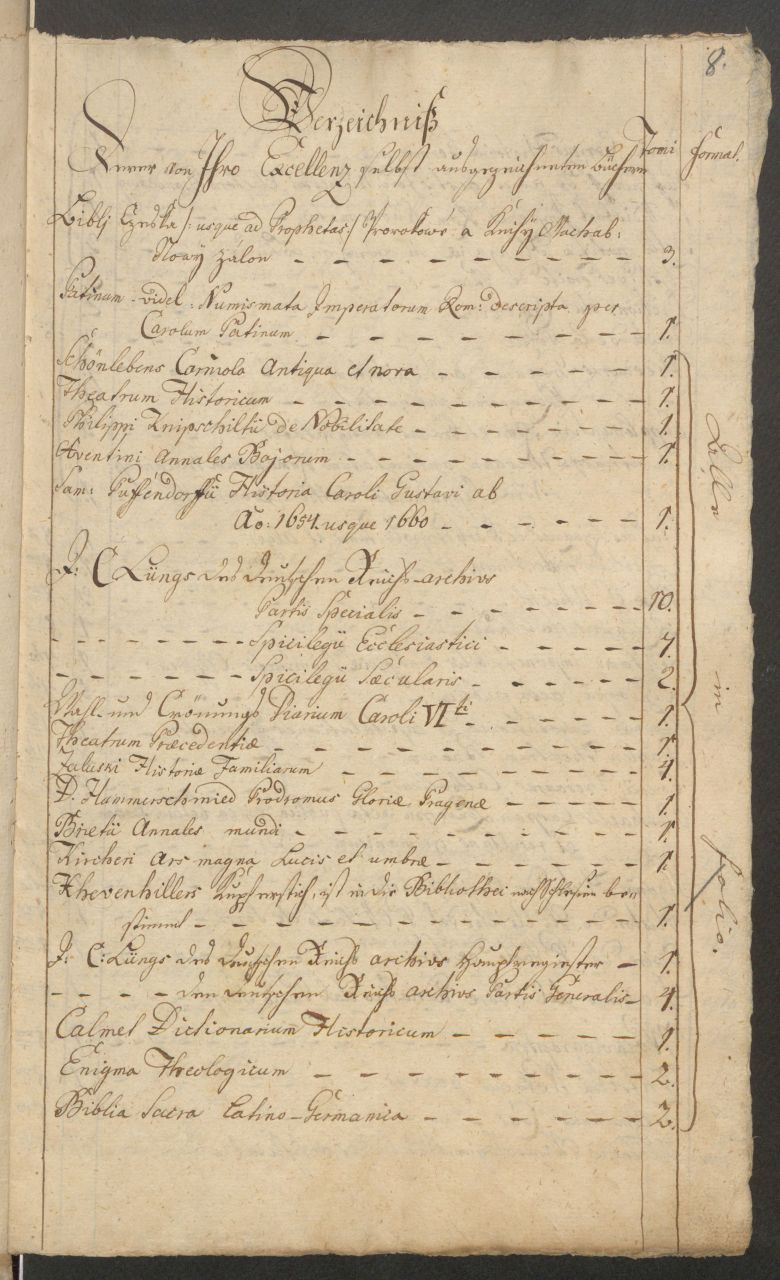 8.
Verzeichniß
Derer von Ihro Excellenz selbst ausgezeichneten Büchern Tomi format.
Biblj Czeska /: usque ad Prophetas :/ Prorokowe a Knihy Machab:
Nowy zakon 3.
Patinum videl: Numismata Imperatorum Rom: descripta per
Carolum Patinum 1.
Schönlebens Carniola Antiqua et nova 1.
Theatrum Historicum 1.
Philippi Knipschiltii de Nobilitate 1.
Aventini Annales Bojorum 1.
Sam: Puffendorffii Historia Caroli Gustavi ab
Ao: 1654. usque 1660 1.
J: C Lüngs des deutschen Reichs-archivs
Partis Specialis 10.
Spicilegii Ecclesiastici 7.
Spicilegii Sæcularis 2.
Wahl- und Crönungs Diarium Caroli VIti 1.
Theatrum Præcedentiæ 1.
Zaluski Historiæ Familiarum 4.
D. Hammerschmied Prodromus Gloriæ Pragenæ 1.
Brietii Annales mundi 1.
Kircheri Ars magna Lucis et umbræ 1.
Khevenhillers Kupferstich, ist in die Bibliothec nach Schlesien be=
stimmt 1.
J: C: Lüngs des deutschen Reichs archivs Hauptregiester 1.
den deutschen Reichs archivs Partis Generalis 4.
Calmet Dictionarium Historicum 1.
Enigma Theologicum 2.
Biblia Sacra Latino-Germanica 2.
Alle in folio.